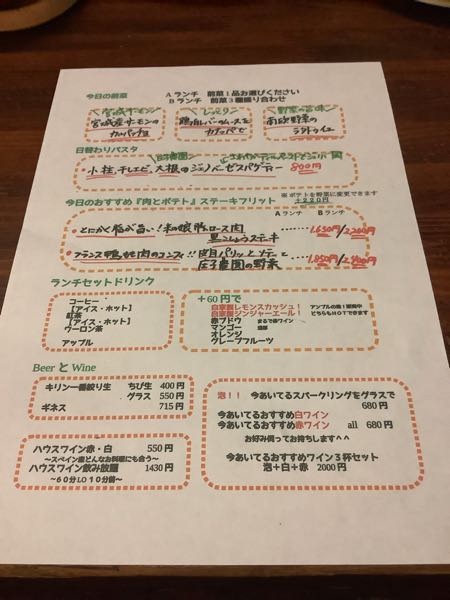 今日の前菜
Aランチ 前菜1品お選びください
Bランチ 前菜3種盛り合わせ
宮城サーモン
宮城産サーモンの
カルパッチョ
じっくりン
鶏白レバームースを
カナッペで
野菜の旨味
南欧野菜の
ラタトゥイユ
日替わりパスタ
小柱、干しエビ、大根のジェノベーゼスパゲティー 800円
※ポテトを野菜に変更できます
+220円
今日のおすすめ『肉とポテト』ステーキフリット
Aランチ Bランチ
とにかく脂が旨い!和の娘 豚ロース肉
黒こしょうステーキ ……1,630円/2,200円
フランス鴨もも肉のコンフィ!!皮目パリッとソテーと
庄子農園の野菜 ……1,850円/2,400円
ランチセットドリンク
コーヒー
【アイス・ホット】
紅茶
【アイス・ホット】
ウーロン茶
アップル
+60円で
自家製レモンスカッシュ!
自家製ジンジャーエール!
どちらもHOTできます
赤ブドウ まるで赤ワイン
マンゴー 濃厚
オレンジ
グレープフルーツ
Beer と Wine
キリン一番絞り生 ちび生 400円
グラス 550円
ギネス 715円
ハウスワイン赤・白 550円
~スペイン産どんなお料理にも合う~
ハウスワイン飲み放題 1430円
~60分LO10分前~
泡!! 今あいてるスパークリングをグラスで
680円
今あいてるおすすめ白ワイン
今あいてるおすすめ赤ワイン all 680円
お好み伺ってお持ちします^^
今あいてるおすすめワイン3杯セット
泡+白+赤 2000円